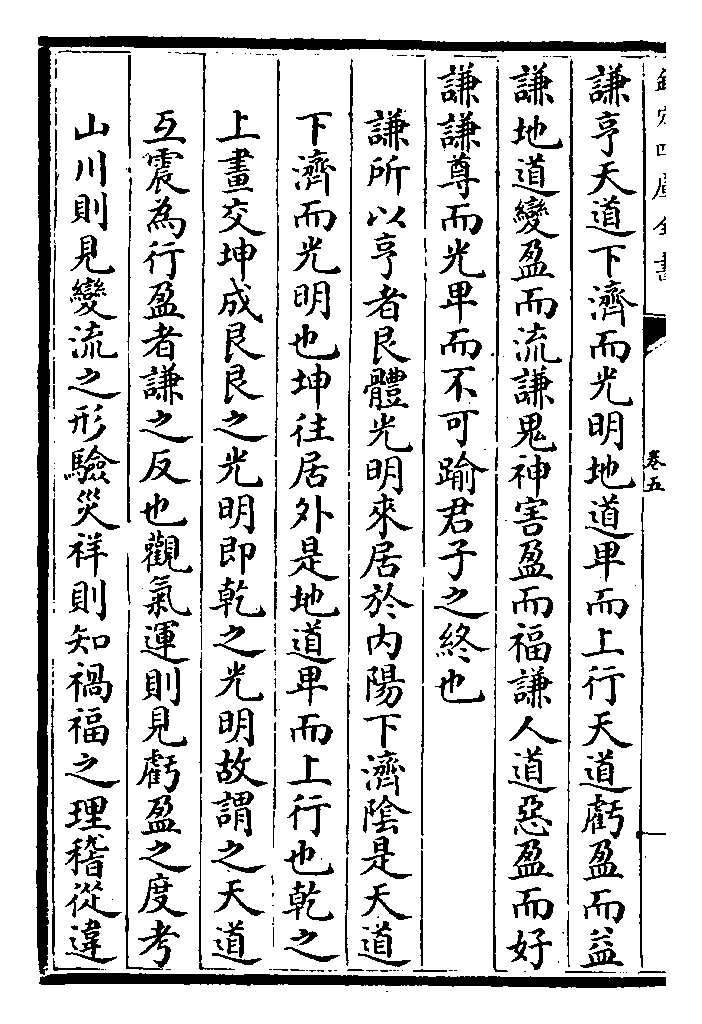 欽定四庫全書
卷五
謙亨天道下濟而光明地道卑而上行天道虧盈而益
謙地道變盈而流謙鬼神害盈而福謙人道惡盈而好
謙謙尊而光卑而不可踰君子之終也
謙所以亨者艮體光明來居於内陽下濟隂是天道
下濟而光明也坤往居外是地道卑而上行也乾之
上畫交坤成艮艮之光明即乾之光明故謂之天道
互震為行盈者謙之反也觀氣運則見虧盈之度考
山川則見變流之形驗災祥則知禍福之理稽從違